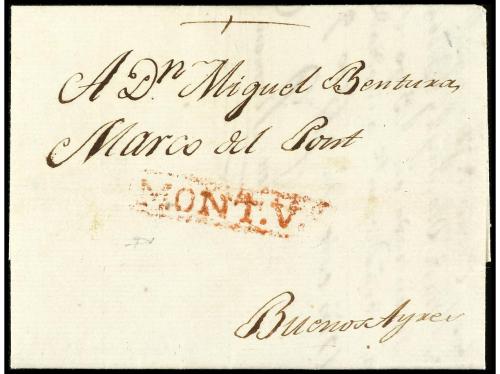 A Dn. Miguel Bentura
Marco del Pont
MONT.V.
Buenos Ayres